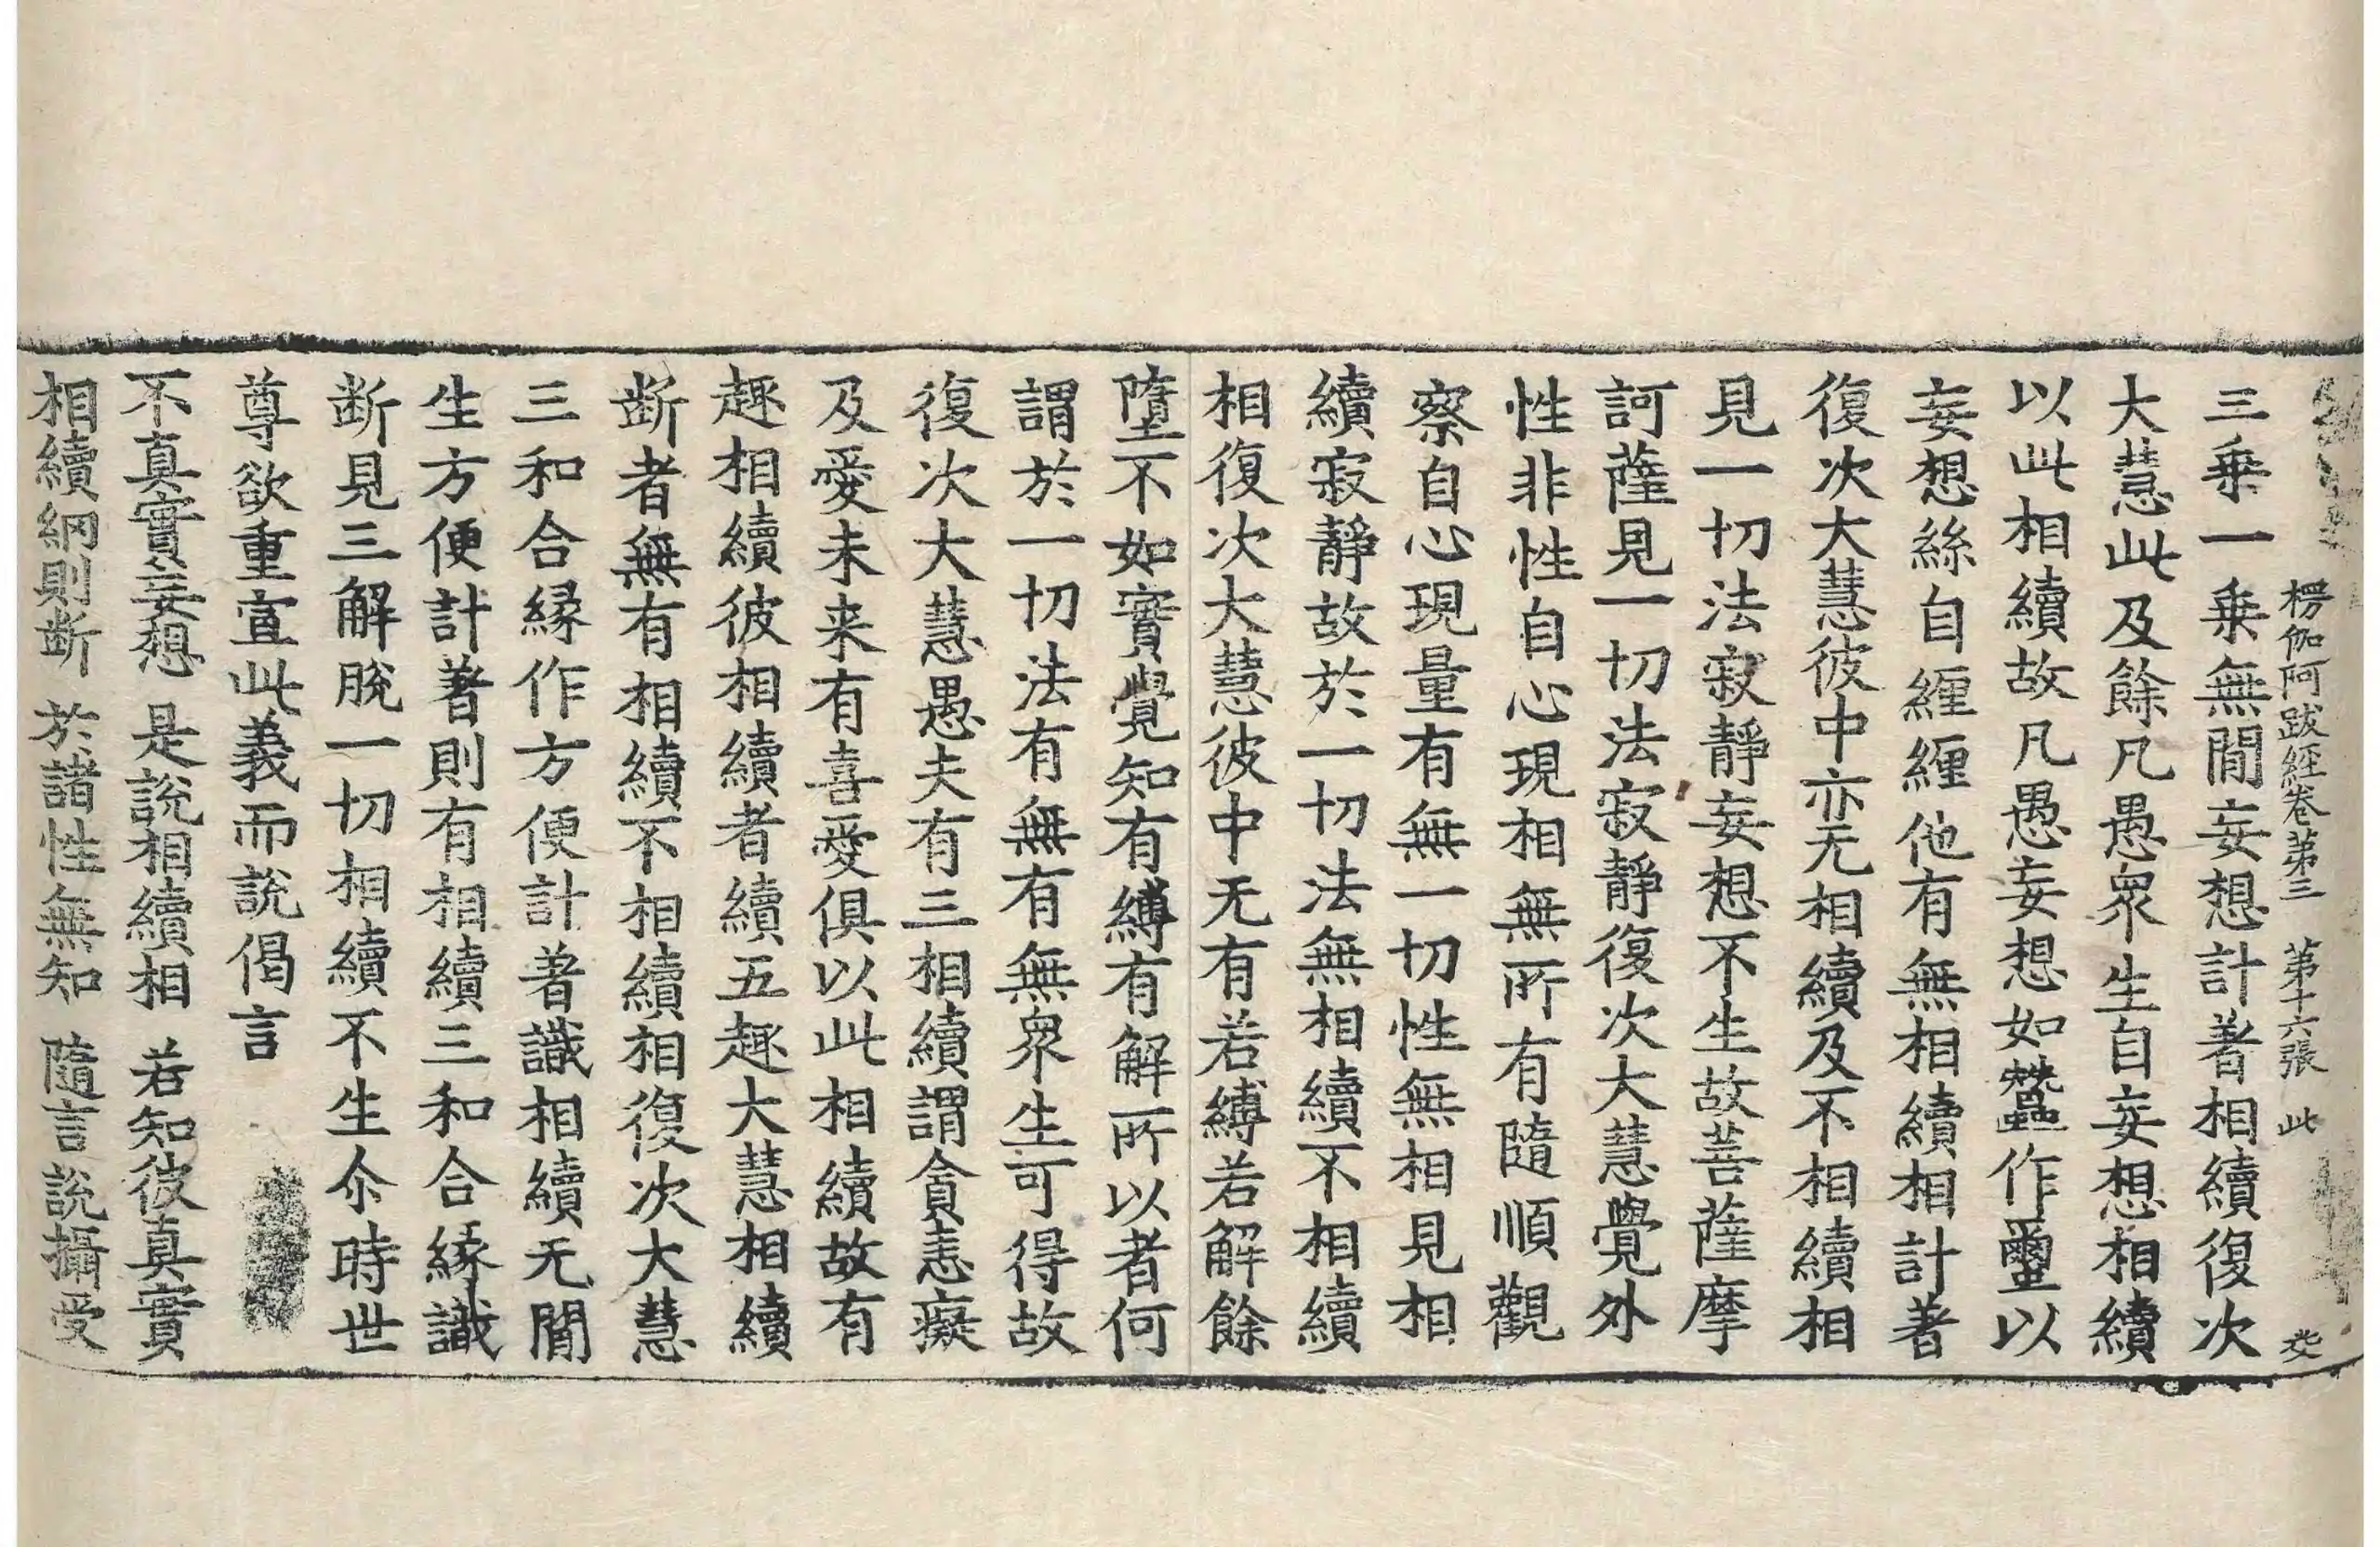 楞伽阿跋經卷第三　第十六張　此
三乗一乗無閒妄想計著相續復次
大慧此及餘凡愚衆生自妄想相續
以此相續故凡愚妄想如蠶作𦇯以
妄想絲自纒纒他有無相續相計著
復次大慧彼中亦无相續及不相續相
見一切法寂靜妄想不生故菩薩摩
訶薩見一切法寂靜復次大慧覺外
性非性自心現相無所有隨順觀
察自心現量有無一切性無相見相
續寂靜故於一切法無相續不相續
相復次大慧彼中无有若縛若解餘
墮不如實覺知有縛有解所以者何
謂於一切法有無有無衆生可得故
復次大慧愚夫有三相續謂貪恚癡
及愛未来有喜愛俱以此相續故有
趣相續彼相續者續五趣大慧相續
断者無有相續不相續相復次大慧
三和合縁作方便計著識相續无閒
生方便計著則有相續三和合縁識
断見三解脫一切相續不生尒時世
尊欲重宣此義而說偈言
不真實妄想　是說相續相　若知彼真實
相續網則断　於諸性無知　隨言說攝受